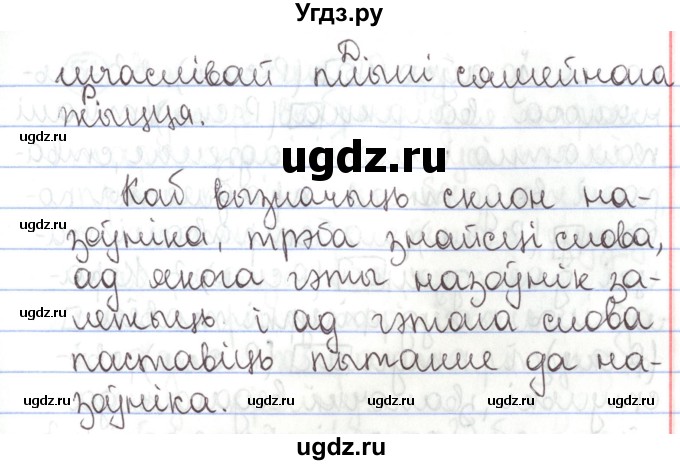 Угдз.ру
Д
шчаслівай плыні сямейнага
Р
жыцця.
ugdz.ru ugdz.ru ugdz.ru
ugdz.ru
Каб вызначыць склон на-
зоўніка, трэба знайсці слова,
ад якога гэты назоўнік за-
лежыць і ад гэтага слова
паставіць пытанне да на-
зоўніка.
ugdz.ru ugdz.ru ugdz.ru ugdz.ru ugdz.ru ugdz.ru
ugdz.ru